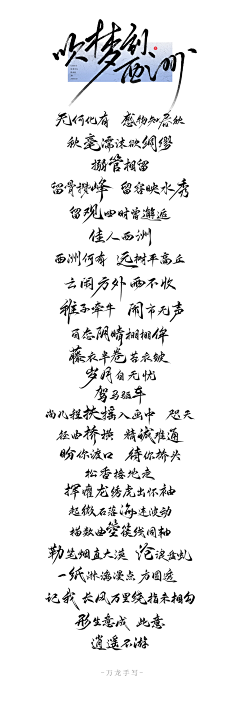 吹梦到西洲
无何化有 感物知春秋
秋毫濡沫欲绸缪
搦管相留
留骨攒峰 留容映水秀
留观四时曾邂逅
佳人西洲
西洲何有 远树平高丘
云闲方外雨不收
稚子牵牛 闹市无声
百态阴晴栩栩侔
藤衣半卷苔衣皱
岁月自无忧
驾马驱车
尚几程扶摇入画中 咫天
径曲桥横 精诚难通
盼你渡口 待你桥头
松香接地走
挥癯龙绣虎出怀袖
起微石落海连波动
描数曲箜篌线同轴
勒笔烟直大漠 沧浪盘虬
一纸淋漓漫点 方圆透
记我 长风万里绕指来相勾
形生意成 此意
逍遥不游
-万龙手写-